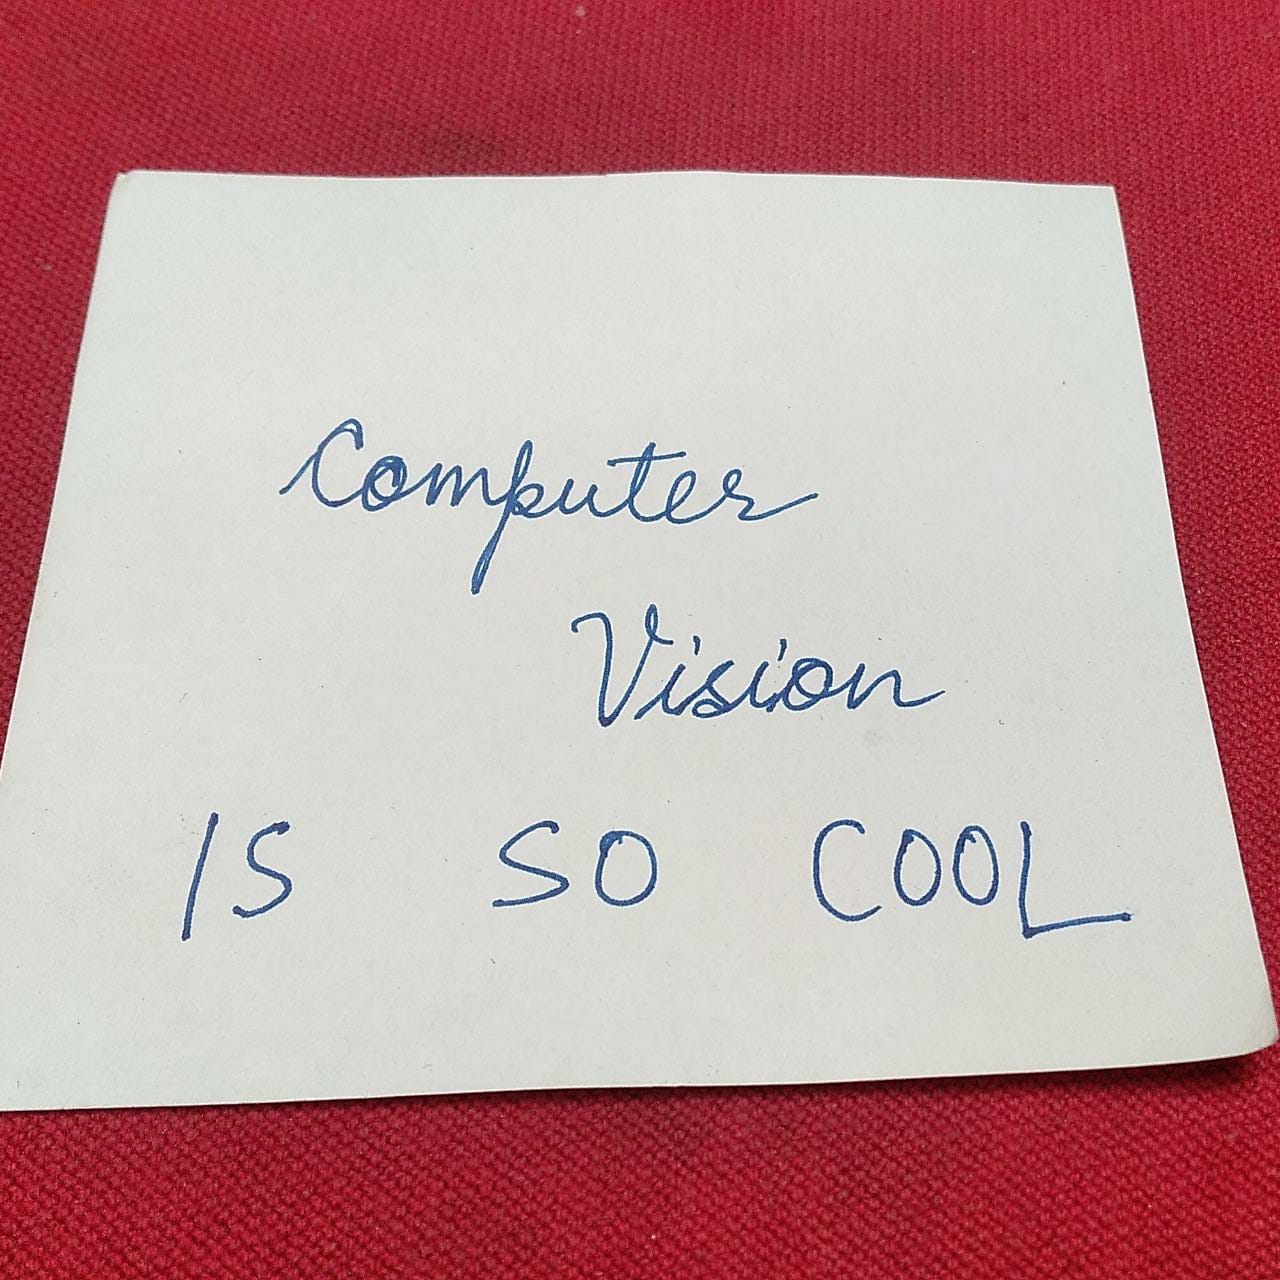 Computer
Vision
IS SO COOL